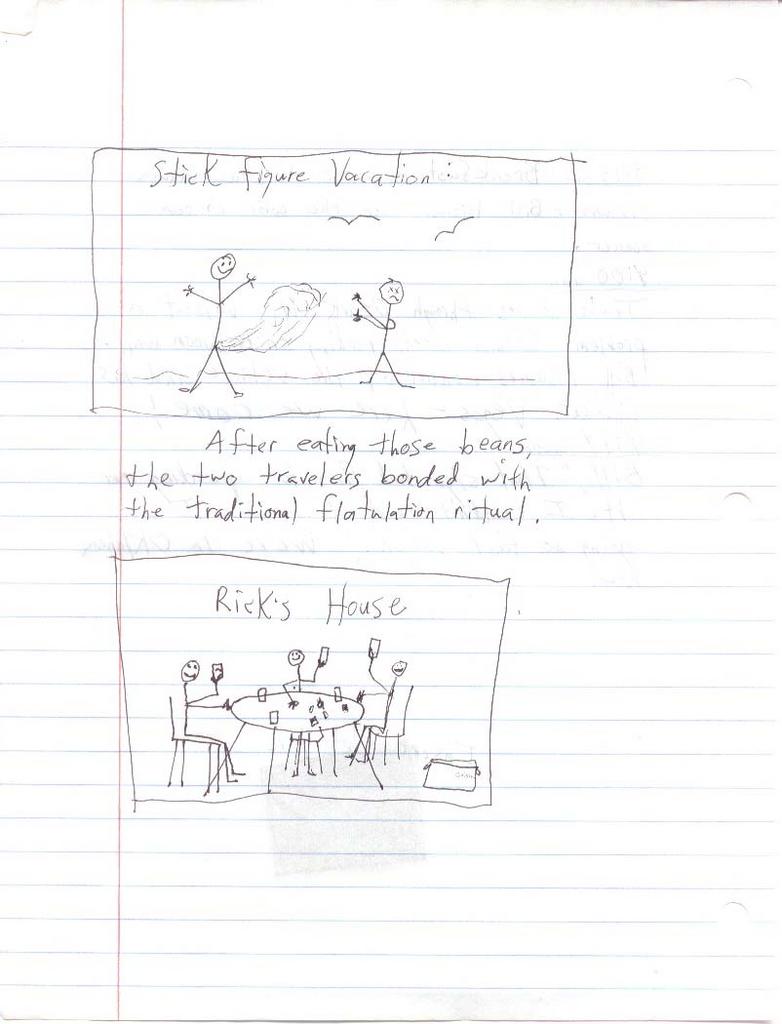 Stick figure Vacation:
After eating those beans,
the two travelers bonded with
the traditional flatulation ritual.
Rick's House